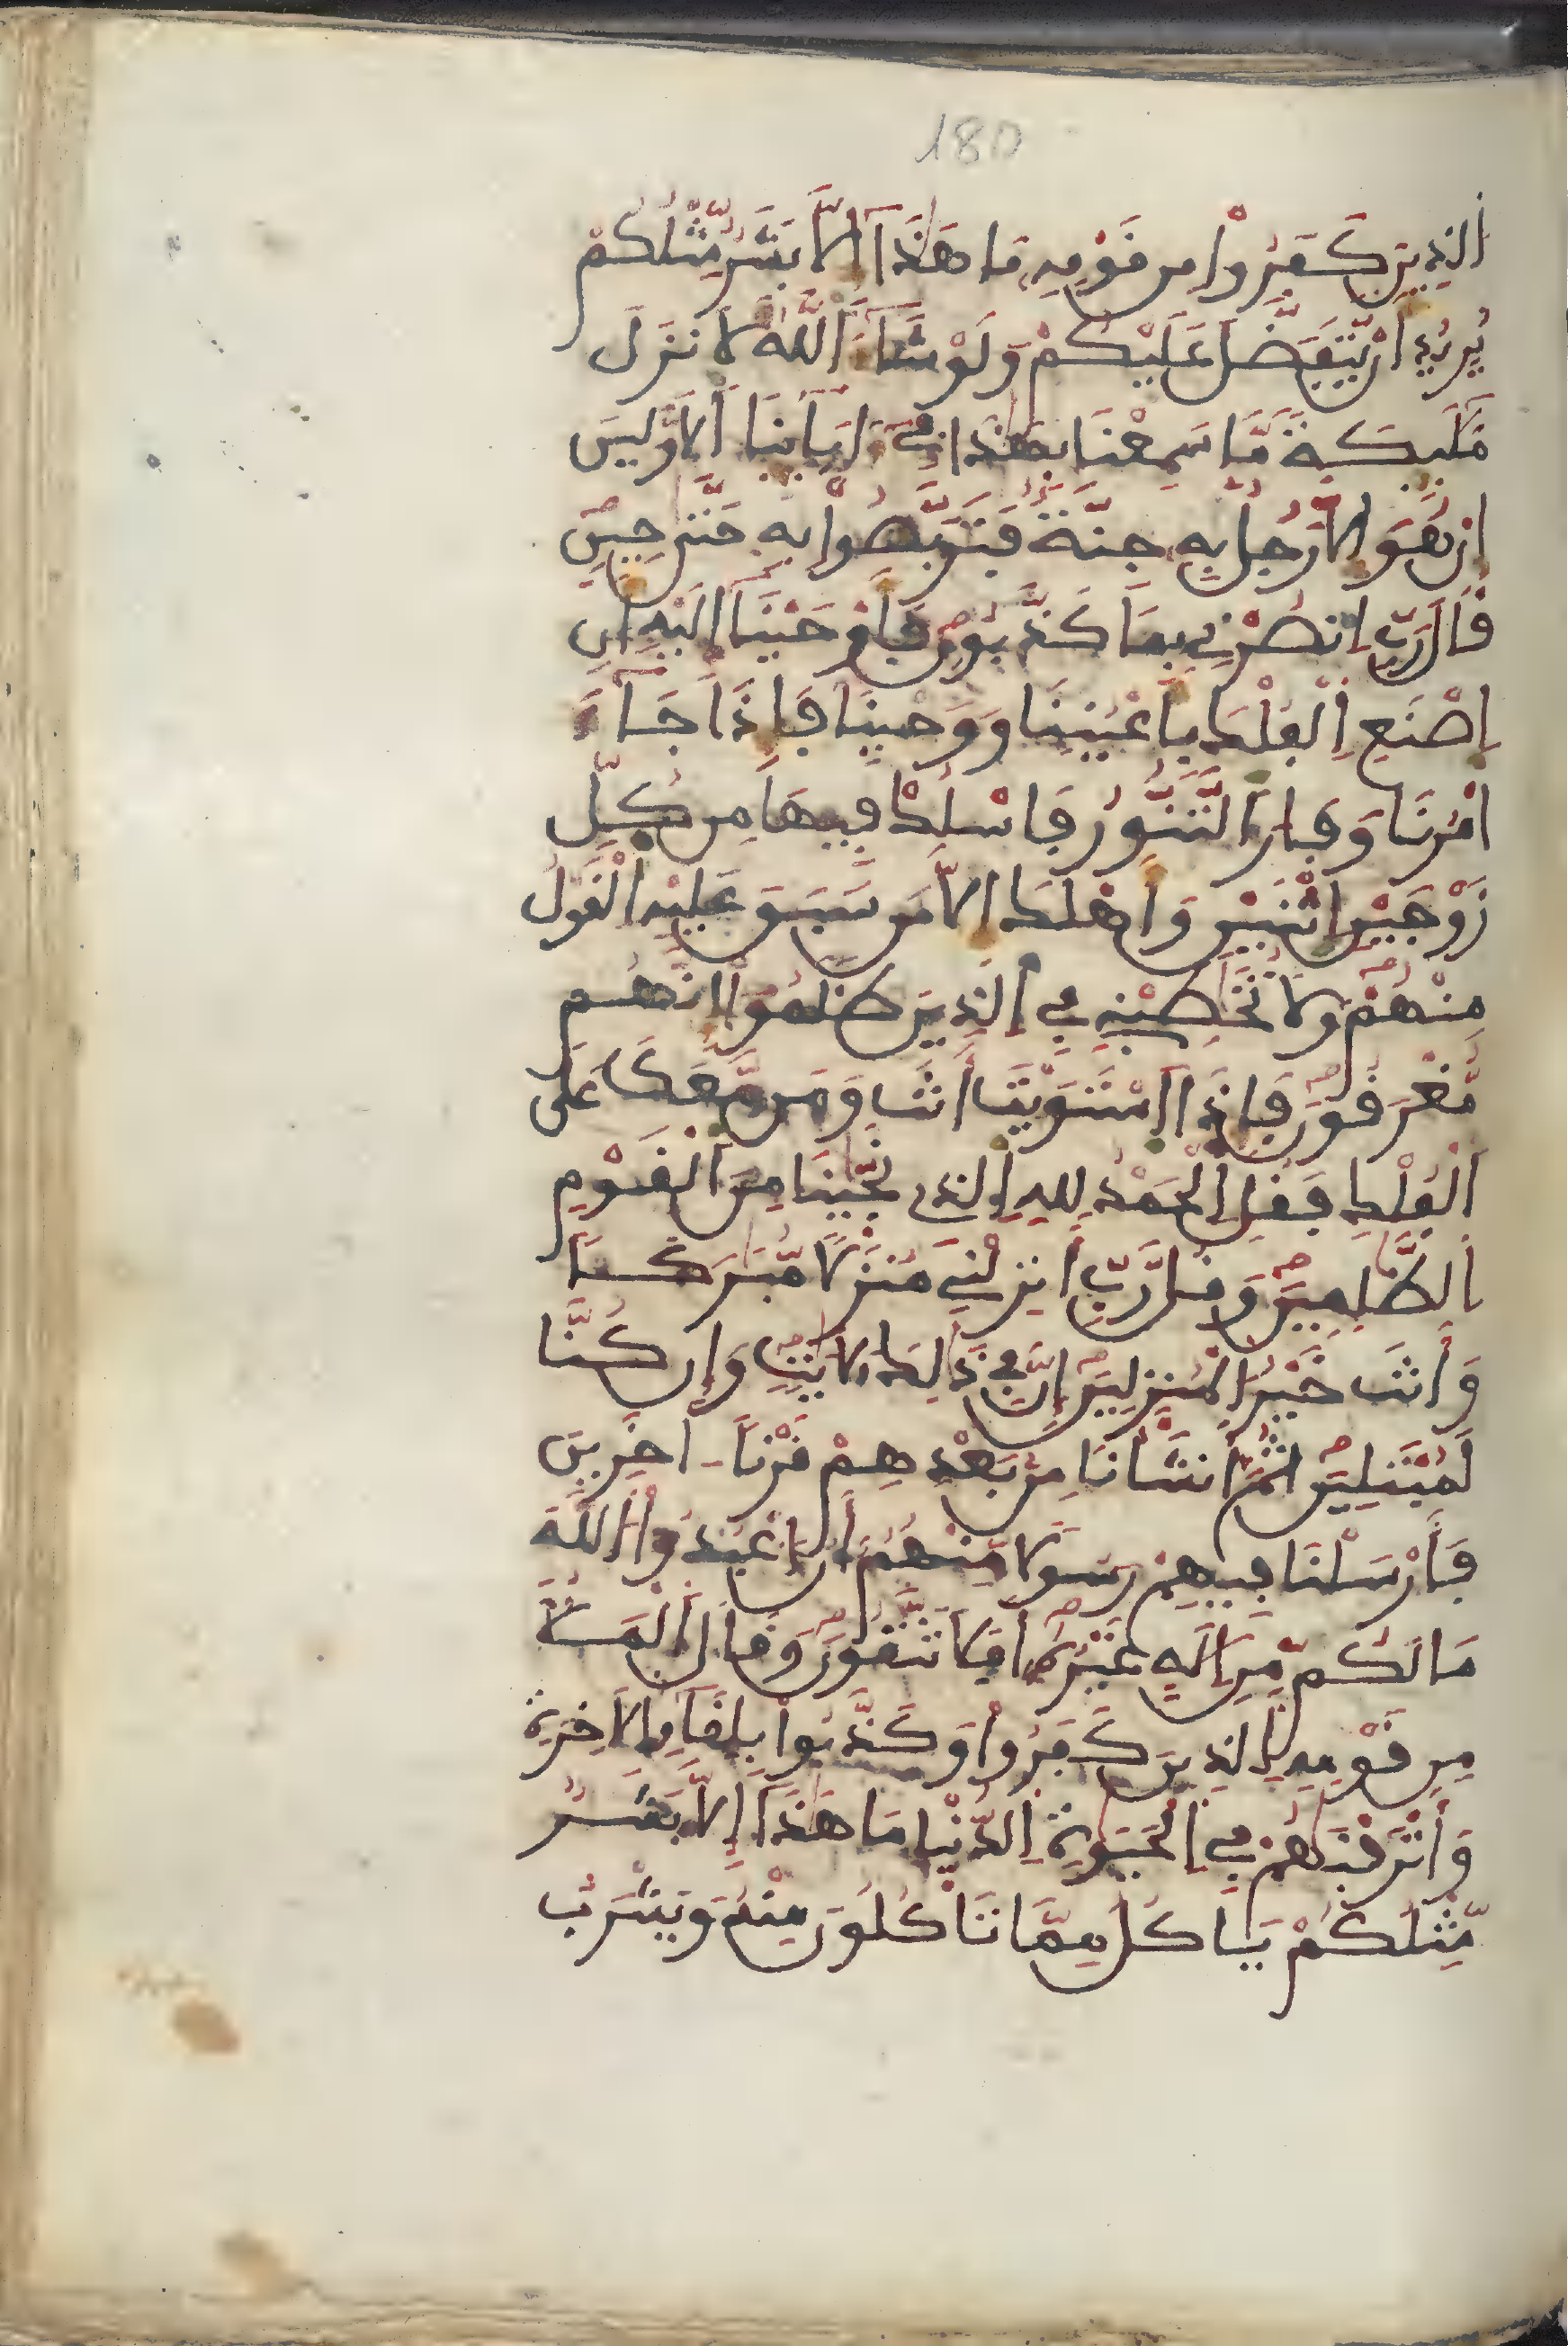 180
اَلذِينَ كَفَرُواْ مِن قَوْمِهِ مَا هَٰذَآ إِلَّا بَشَرٌ مِّثْلُكُمْ
يُرِيدُ أَنْ يَّتَفَضَّلَ عَلَيْكُمْ وَلَوْ شَآءَ اَللَّهُ لَأَنزَلَ
مَلَٰٓئِكَةً مَّا سَمِعْنَا بِهَٰذَا فِےٓ ءَابَآئِنَا اَلْأَوَّلِينَ
إِنْ هُوَ إِلَّا رَجُلٌ بِهِ جِنَّةٌ فَتَرَبَّصُواْ بِهِ حَتَّىٰ حِينٍ
قَالَ رَبِّ اِنصُرْنِے بِمَا كَذَّبُونِ فَأَوْحَيْنَآ إِلَيْهِ أَنِ
اِصْنَعِ اِلْفُلْكَ بِأَعْيُنِنَا وَوَحْيِنَا فَإِذَا جَآءَ
امْرُنَا وَفَارَ اَلتَّنُّورُ فَاسْلُكْ فِيهَا مِن كُلِّ
زَوْجَيْنِ اِثْنَيْنِ وَأَهْلَكَ إِلَّا مَن سَبَقَ عَلَيْهِ اِلْقَوْلُ
مِنْهُمْ وَلَا تُخَٰطِبْنِے فِے اِلذِينَ ظَلَمُوٓاْ إِنَّهُم
مُّغْرَقُونَ فَإِذَا اَسْتَوَيْتَ أَنتَ وَمَن مَّعَكَ عَلَى
اَلْفُلْكِ فَقُلِ اِلْحَمْدُ لِلهِ اِلذِے نَجَّيٰنَا مِنَ اَلْقَوْمِ
اِلظَّٰلِمِينَ وَقُل رَّبِّ أَنزِلْنِے مُنزَلًا مُّبَٰرَكًا
وَأَنتَ خَيْرُ اُلْمُنزِلِينَ إِنَّ فِے ذَٰلِكَ لَأٓيَٰتٍ وَإِن كُنَّا
لَمُبْتَلِينَ ثُمَّ أَنشَأْنَا مِنۢ بَعْدِهِمْ قَرْنًا اٰخَرِينَ
فَأَرْسَلْنَا فِيهِمْ رَسُولًا مِّنْهُمُۥٓ أَنُ اُعْبُدُواْ اُللَّهَ
مَا لَكُم مِّنِ اِلَٰهٍ غَيْرُهُۥٓ أَفَلَا تَتَّقُونَ وَقَالَ اَلْمَلَأُ
مِن قَوْمِهِ اِلذِينَ كَفَرُواْ وَكَذَّبُواْ بِلِقَآءِ اِلْأَخِرَةِ
وَأَتْرَفْنَٰهُمْ فِے اِلْحَيَوٰةِ اِلدُّنْيَا مَا هَٰذَآ إِلَّا بَشَرٌ
مِّثْلُكُمْ يَأْكُلُ مِمَّا تَأْكُلُونَ مِنْهُ وَيَشْرَبُ